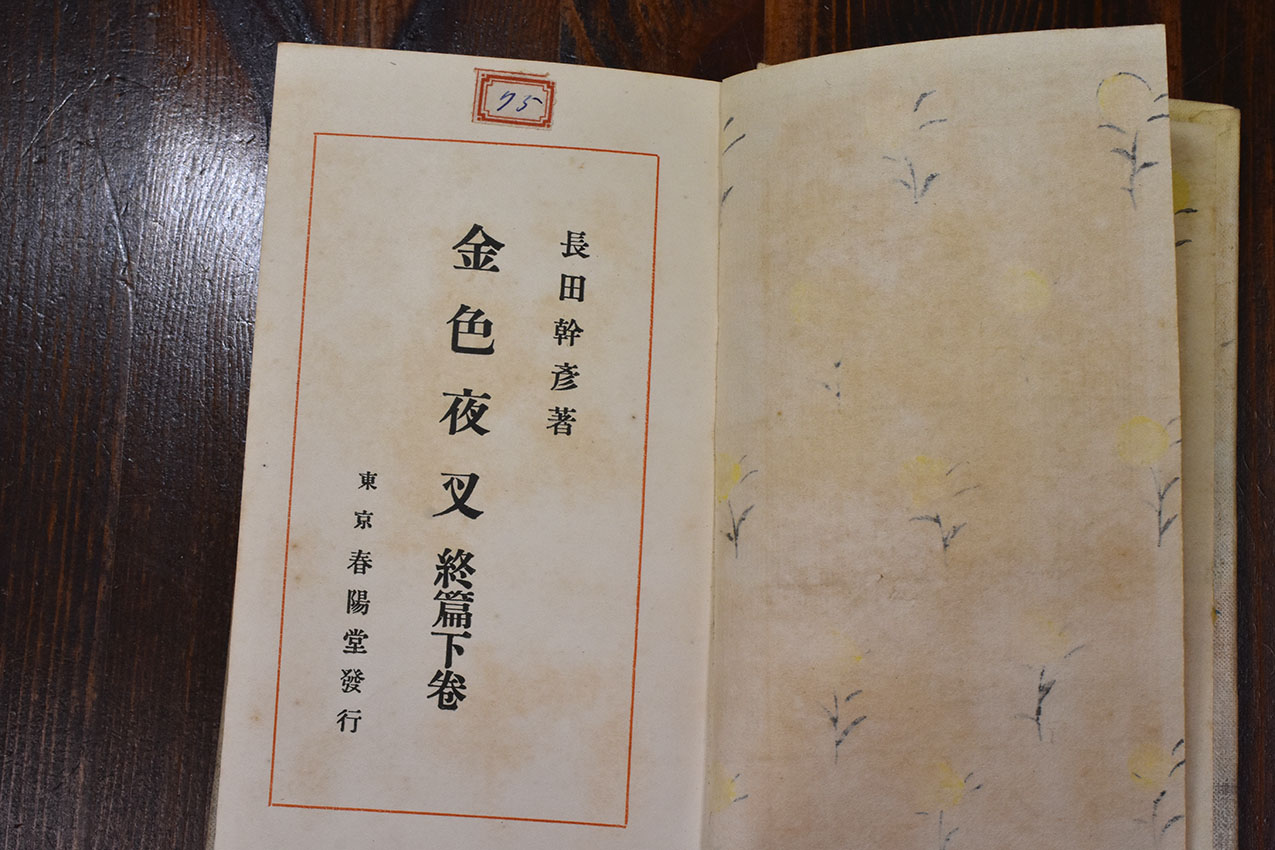 75
長田幹彦著
金色夜叉 終篇下卷
東京 春陽堂發行